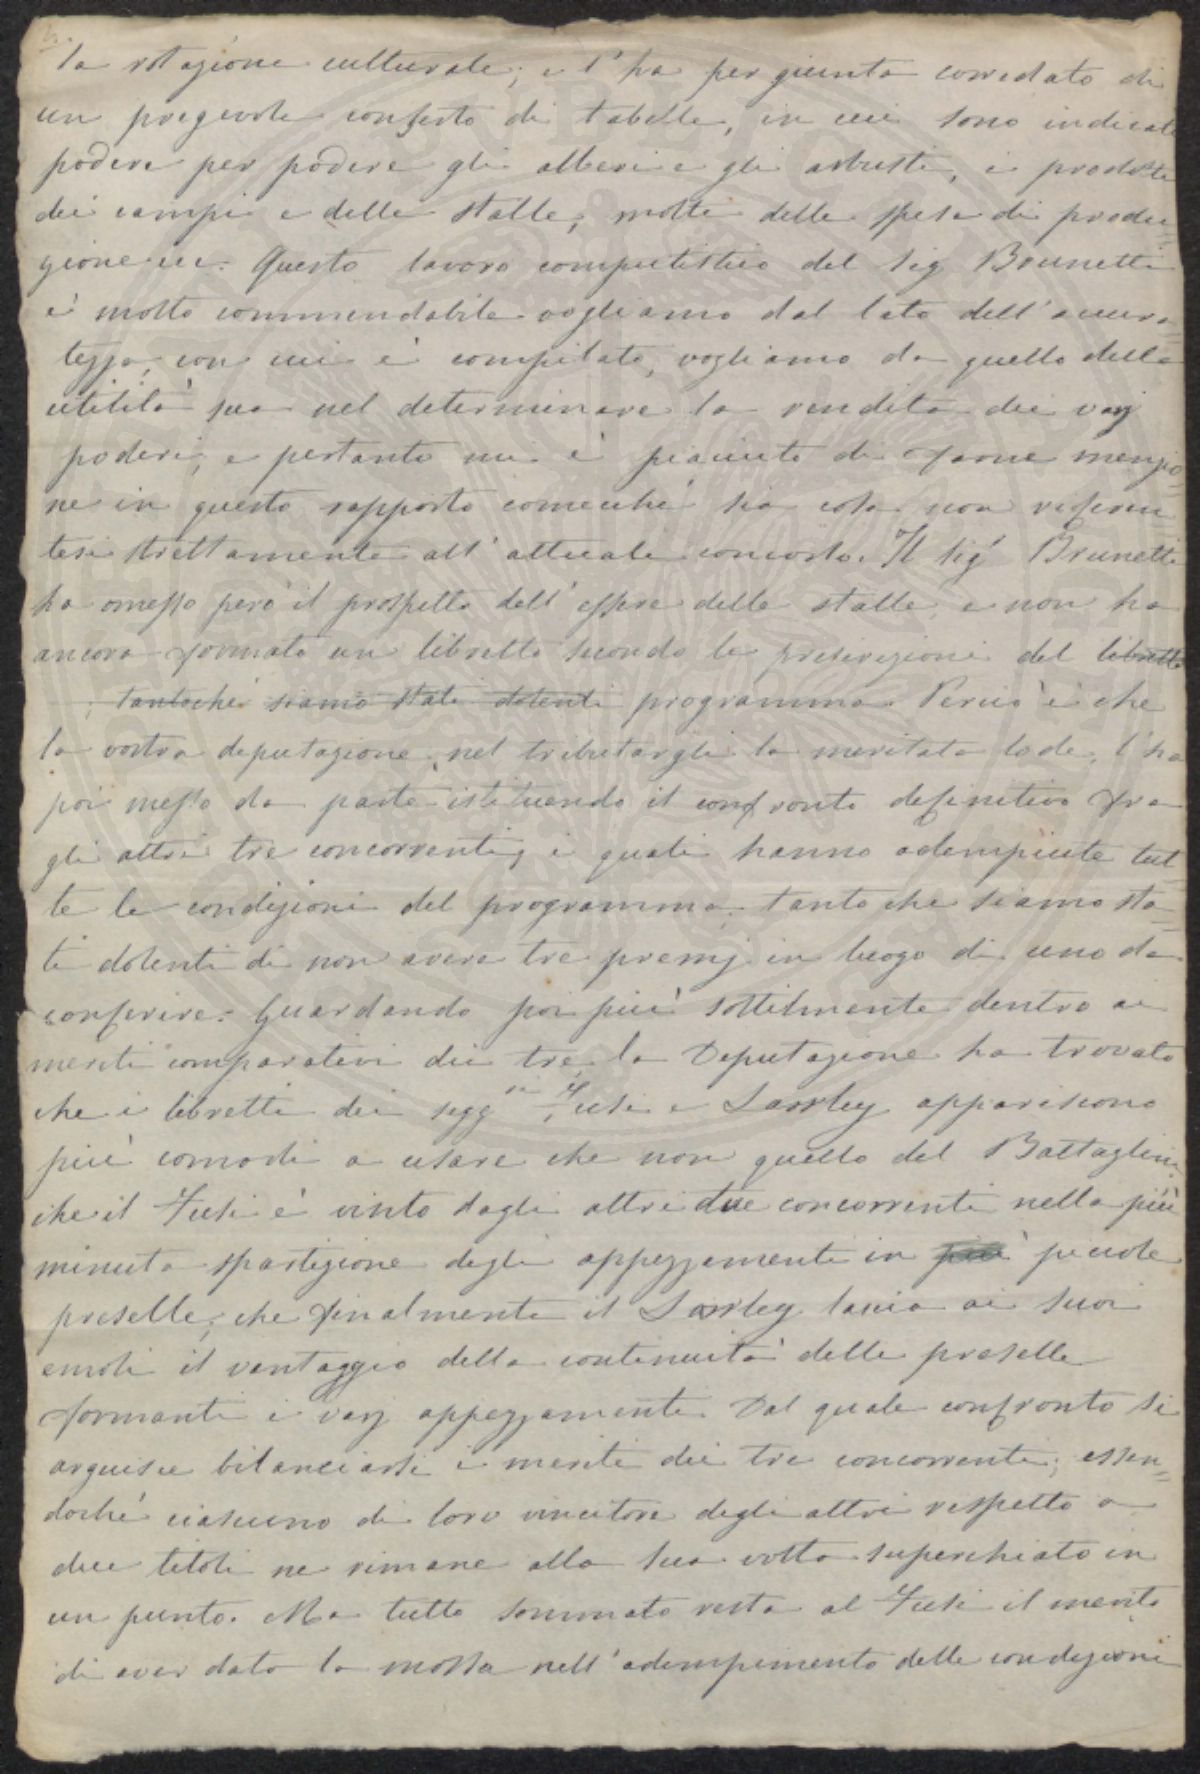 la rotazione culturale; e l'ha per giunta corredato di
un pregevole conserto di tabelle, in cui sono indicati
podere per podere gli alberi e gli arbusti, i prodotti
dei campi e delle stalle, molte delle spese di produ=
zione ecc. Questo lavoro computistico del Sig Brunetti
è molto commendabile vogliamo dal lato dell'accura=
tezza, con cui è compilato, vogliamo da quello della
utilità sua nel determinare la rendita dei varj
poderi; e pertanto mi è piaciuto di farne menzio=
ne in questo rapporto comecchè sia cosa non riferen
tesi strettamente all'attuale concorso. Il Sig Brunetti
ha omesso però il prospetto dell'essere delle stalle e non ha
ancora formato un libretto secondo le prescrizioni del libretto
; tantochè siamo stati dolenti programma. Perciò è che
la vostra deputazione, nel tributargli la meritata lode, l'ha
poi messo da parte istituendo il confronto definitivo fra
gli altri tre concorrenti, i quali hanno adempiute tut=
te le condizioni del programma. tanto che siamo sta=
ti dolenti di non avere tre premj in luogo di uno da
conferire. Guardando poi più sottilmente dentro ai
meriti comparativi dei tre la Deputazione ha trovato
che i libretti dei Sigg.ri Fusi e Lawley appariscono
più comodi a usare che non quello del Battaglini
che il Fusi è vinto dagli altri due concorrenti nella più
minuta spartizione degli appezzamenti in più piccole
preselle; che finalmente il Lawley lascia ai suoi
emoli il vantaggio della continuità delle preselle
formanti i varj appezzamenti. Dal quale confronto si
arguisce bilanciarsi i meriti dei tre concorrenti; essen=
dochè ciascuno di loro vincitore degli altri rispetto a
due titoli ne rimane alla sua volta superchiato in
un punto. Ma tutto sommato resta al Fusi il merito
di aver dato la mossa nell'adempimento delle condizioni